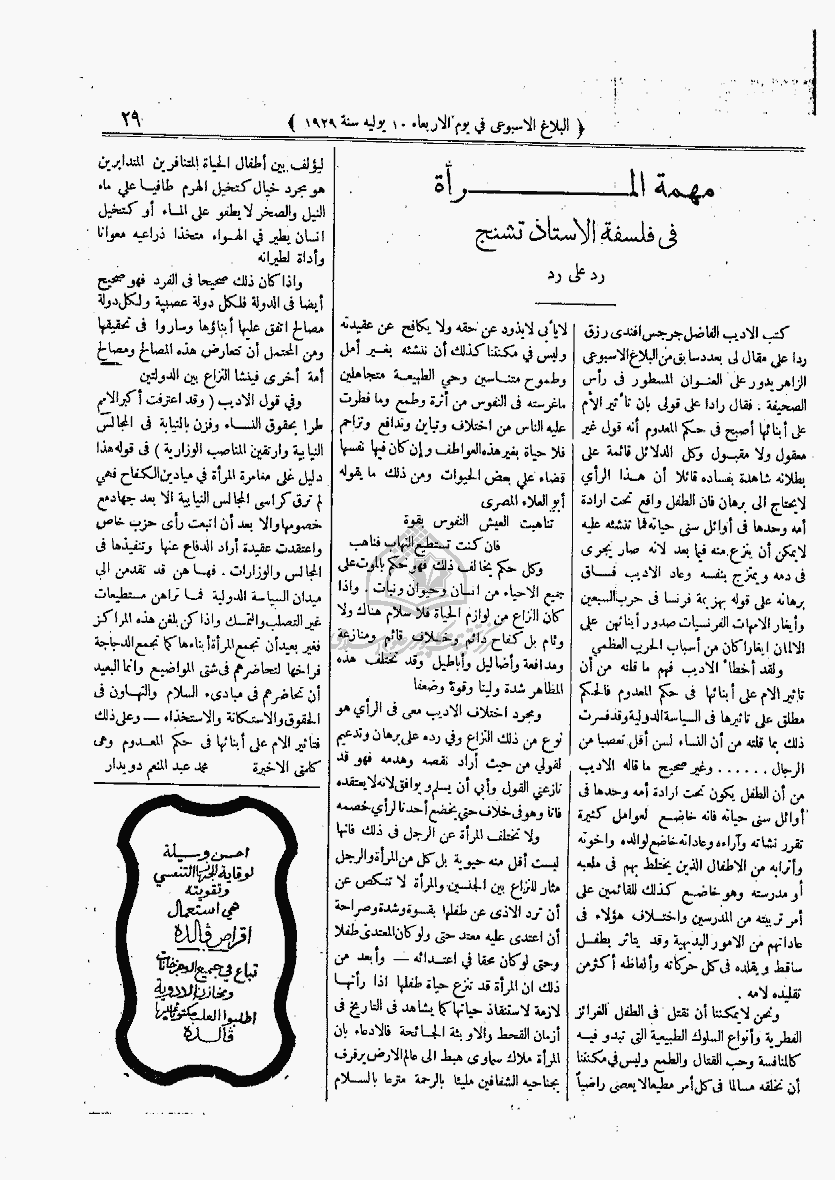 ﴿ البلاغ الاسبوعى في يوم الاربعاء ١٠ يوليه سنة ١٩٢٩ ﴾
٢٩
مهمة المـــــرأة
فى فلسفة الاستاذ تشنج
رد على رد
كتب الاديب الفاضل جرجس افندى رزق
ردا على مقال لى بعدد سابق من البلاغ الاسبوعى
الزاهر يدور على العنوان المسطور فى رأس
الصحيفة . فقال رادا على قولى بان تأثير الأم
على أبنائها أصبح فى حكم المعدوم أنه قول غير
معقول ولا مقبول وكل الدلائل قائمة على
بطلانه شاهدة بفساده قائلا أن هذا الرأي
لايحتاج الى برهان فان الطفل واقع تحت ارادة
أمه وحدها فى أوائل سنى حياته فما تنشئه عليه
لايمكن أن ينزع منه فيما بعد لانه صار يجرى
فى دمه ويمتزج بنفسه وعاد الاديب فساق
برهانه على قوله بهزيمة فرنسا فى حرب السبعين
وأيغار الامهات الفرنسيات صدور أبنائهن على
الالمان ايغارا كان من أسباب الحرب العظمى
ولقد أخطأ الاديب فهم ما قلته من أن
تاثير الام على أبنائها فى حكم المعدوم فالحكم
مطلق على تاثيرها فى السياسة الدولية وقد فسرت
ذلك بما قلته من أن النساء لسن أقل تعصبا من
الرجال . . . . . . وغير صحيح ما قاله الاديب
من أن الطفل يكون تحت ارادة أمه وحدها فى
أوائل سنى حياته فانه خاضع لعوامل كثيرة
تقرر نشاته وآراءه وعاداته خاضع لوالده واخوته
وأترابه من الاطفال الذين يختلط بهم فى ملعبه
أو مدرسته وهو خاضع كذلك للقائمين على
أمر تربيته من المدرسين واختلاف هؤلاء فى
عاداتهم من الامور البديهية وقد يتاثر بطفل
ساقط ويقلده فى كل حركاته وألفاظه أكثر من
تقليده لامه .
ونحن لايمكننا أن نقتل فى الطفل الغرائز
الفطرية وأنواع السلوك الطبيعية التى تبدو فيه
كالمنافسة وحب القتال والطمع وليس فى مكنتنا
أن نخلقه مسالما فى كل أمر مطيعا لا يعصى راضياً
لايأبى لايذود عن حقه ولا يكافح عن عقيدته
وليس في مكنتنا كذلك أن ننشئه بغير أمل
وطموح متناسين وحي الطبيعة متجاهلين
ماغرسته فى النفوس من أثرة وطمع وما فطرت
عليه الناس من اختلاف وتباين وتدافع وتزاحم
فلا حياة بغير هذه العواطف وإن كان فيها نفسها
قضاء علي بعض الحيوات ومن ذلك ما يقوله
أبو العلاء المصرى
تناهبت العيش النفوس بقوة
فان كنت تستطيع النهاب فناهب
وكل حكم يخالف ذلك فهو حكم بالموت على
جميع الاحياء من انسان وحيوان ونبات . واذا
كان النزاع من لوازم الحياة فلا سلام هناك ولا
وئام بل كفاح دائم وخلاف قائم ومنازعة
ومدافعة وأضاليل وأباطيل وقد تختلف هذه
المظاهر شدة ولينا وقوة وضعفا
ومجرد اختلاف الاديب معى فى الرأي هو
نوع من ذلك النزاع وفي رده على برهان وتدعيم
لقولي من حيث أراد نقضه وهدمه فهو قد
نازعني القول وأبي أن يسلم ويوافق لانه لايعتقده
فانا وهو فى خلاف حتى يخضع أحدنا لرأي خصمه
ولا تختلف المرأة عن الرجل فى ذلك فانها
ليست أقل منه حيوية بل كل من المرأة والرجل
مثار للنزاع بين الجنسين والمرأة لا تنكص عن
أن ترد الاذى عن طفلها بقسوة وشدة وصراحة
أن اعتدى عليه معتد حتى ولو كان المعتدى طفلا
وحتى لو كان محقا في اعتدائه — وأبعد من
ذلك ان المرأة قد تنزع حياة طفلها اذا رأتها
لازمة لاستنقاذ حياتها كما يشاهد فى التاريخ فى
أزمان القحط والاوبئة الجائحة فالادعاء بان
المرأة ملاك سماوى هبط الى عالم الارض يرفرف
بجناحيه الشفافين مليئا بالرحمة مترعا بالسلام
ليؤلف بين أطفال الحياة المتنافرين المتدابرين
هو مجرد خيال كتخيل الهرم طافيا علي ماء
النيل والصخر لا يطفو على الماء أو كتخيل
انسان يطير في الهواء متخذا ذراعيه معوانا
وأداة لطيرانه
واذا كان ذلك صحيحا فى الفرد فهو صحيح
أيضا فى الدولة فلكل دولة عصبية ولكل دولة
مصالح اتفق عليها أبناؤها وساروا فى تحقيقها
ومن المحتمل أن تتعارض هذه المصالح ومصالح
أمة أخرى فينشا النزاع بين الدولتين
وفي قول الاديب ( وقد اعترفت أكبر الامم
طرا بحقوق النساء وفزن بالنيابة فى المجالس
النيابية وارتقين المناصب الوزارية ) فى قوله هذا
دليل على مغامرة المرأة في ميادين الكفاح فهي
لم ترق كراسى المجالس النيابية الا بعد جهاد مع
خصومها والا بعد أن اتبعت رأى حزب خاص
واعتقدت عقيدة أراد الدفاع عنها وتنفيذها فى
المجالس والوزارات . فهاهن قد تقدمن الى
ميدان السياسة الدولية فما تراهن مستطيعات
غير التصلب والتمسك واذا كن بلغن هذه المراكز
فغير بعيد أن تجمع المرأة أبناءها كما تجمع الدجاجة
فراخها لتحاضرهم فى شتى المواضيع وانما البعيد
أن تحاضرهم فى مبادىء السلام والتهاون فى
الحقوق والاستكانة والاستخذاء — وعلى ذلك
فتاثير الام على أبنائها فى حكم المعدوم وهى
كلمتى الاخيرة محمد عبد المنعم دويدار
احسن وسيلة
لوقاية الجهاز التنفسي
وتقويته
هي استعمال
اقراص فالده
تباع في جميع الاجزخانات
ومخازن الادوية
اطلبوا العلب مكتوب عليها
فالده